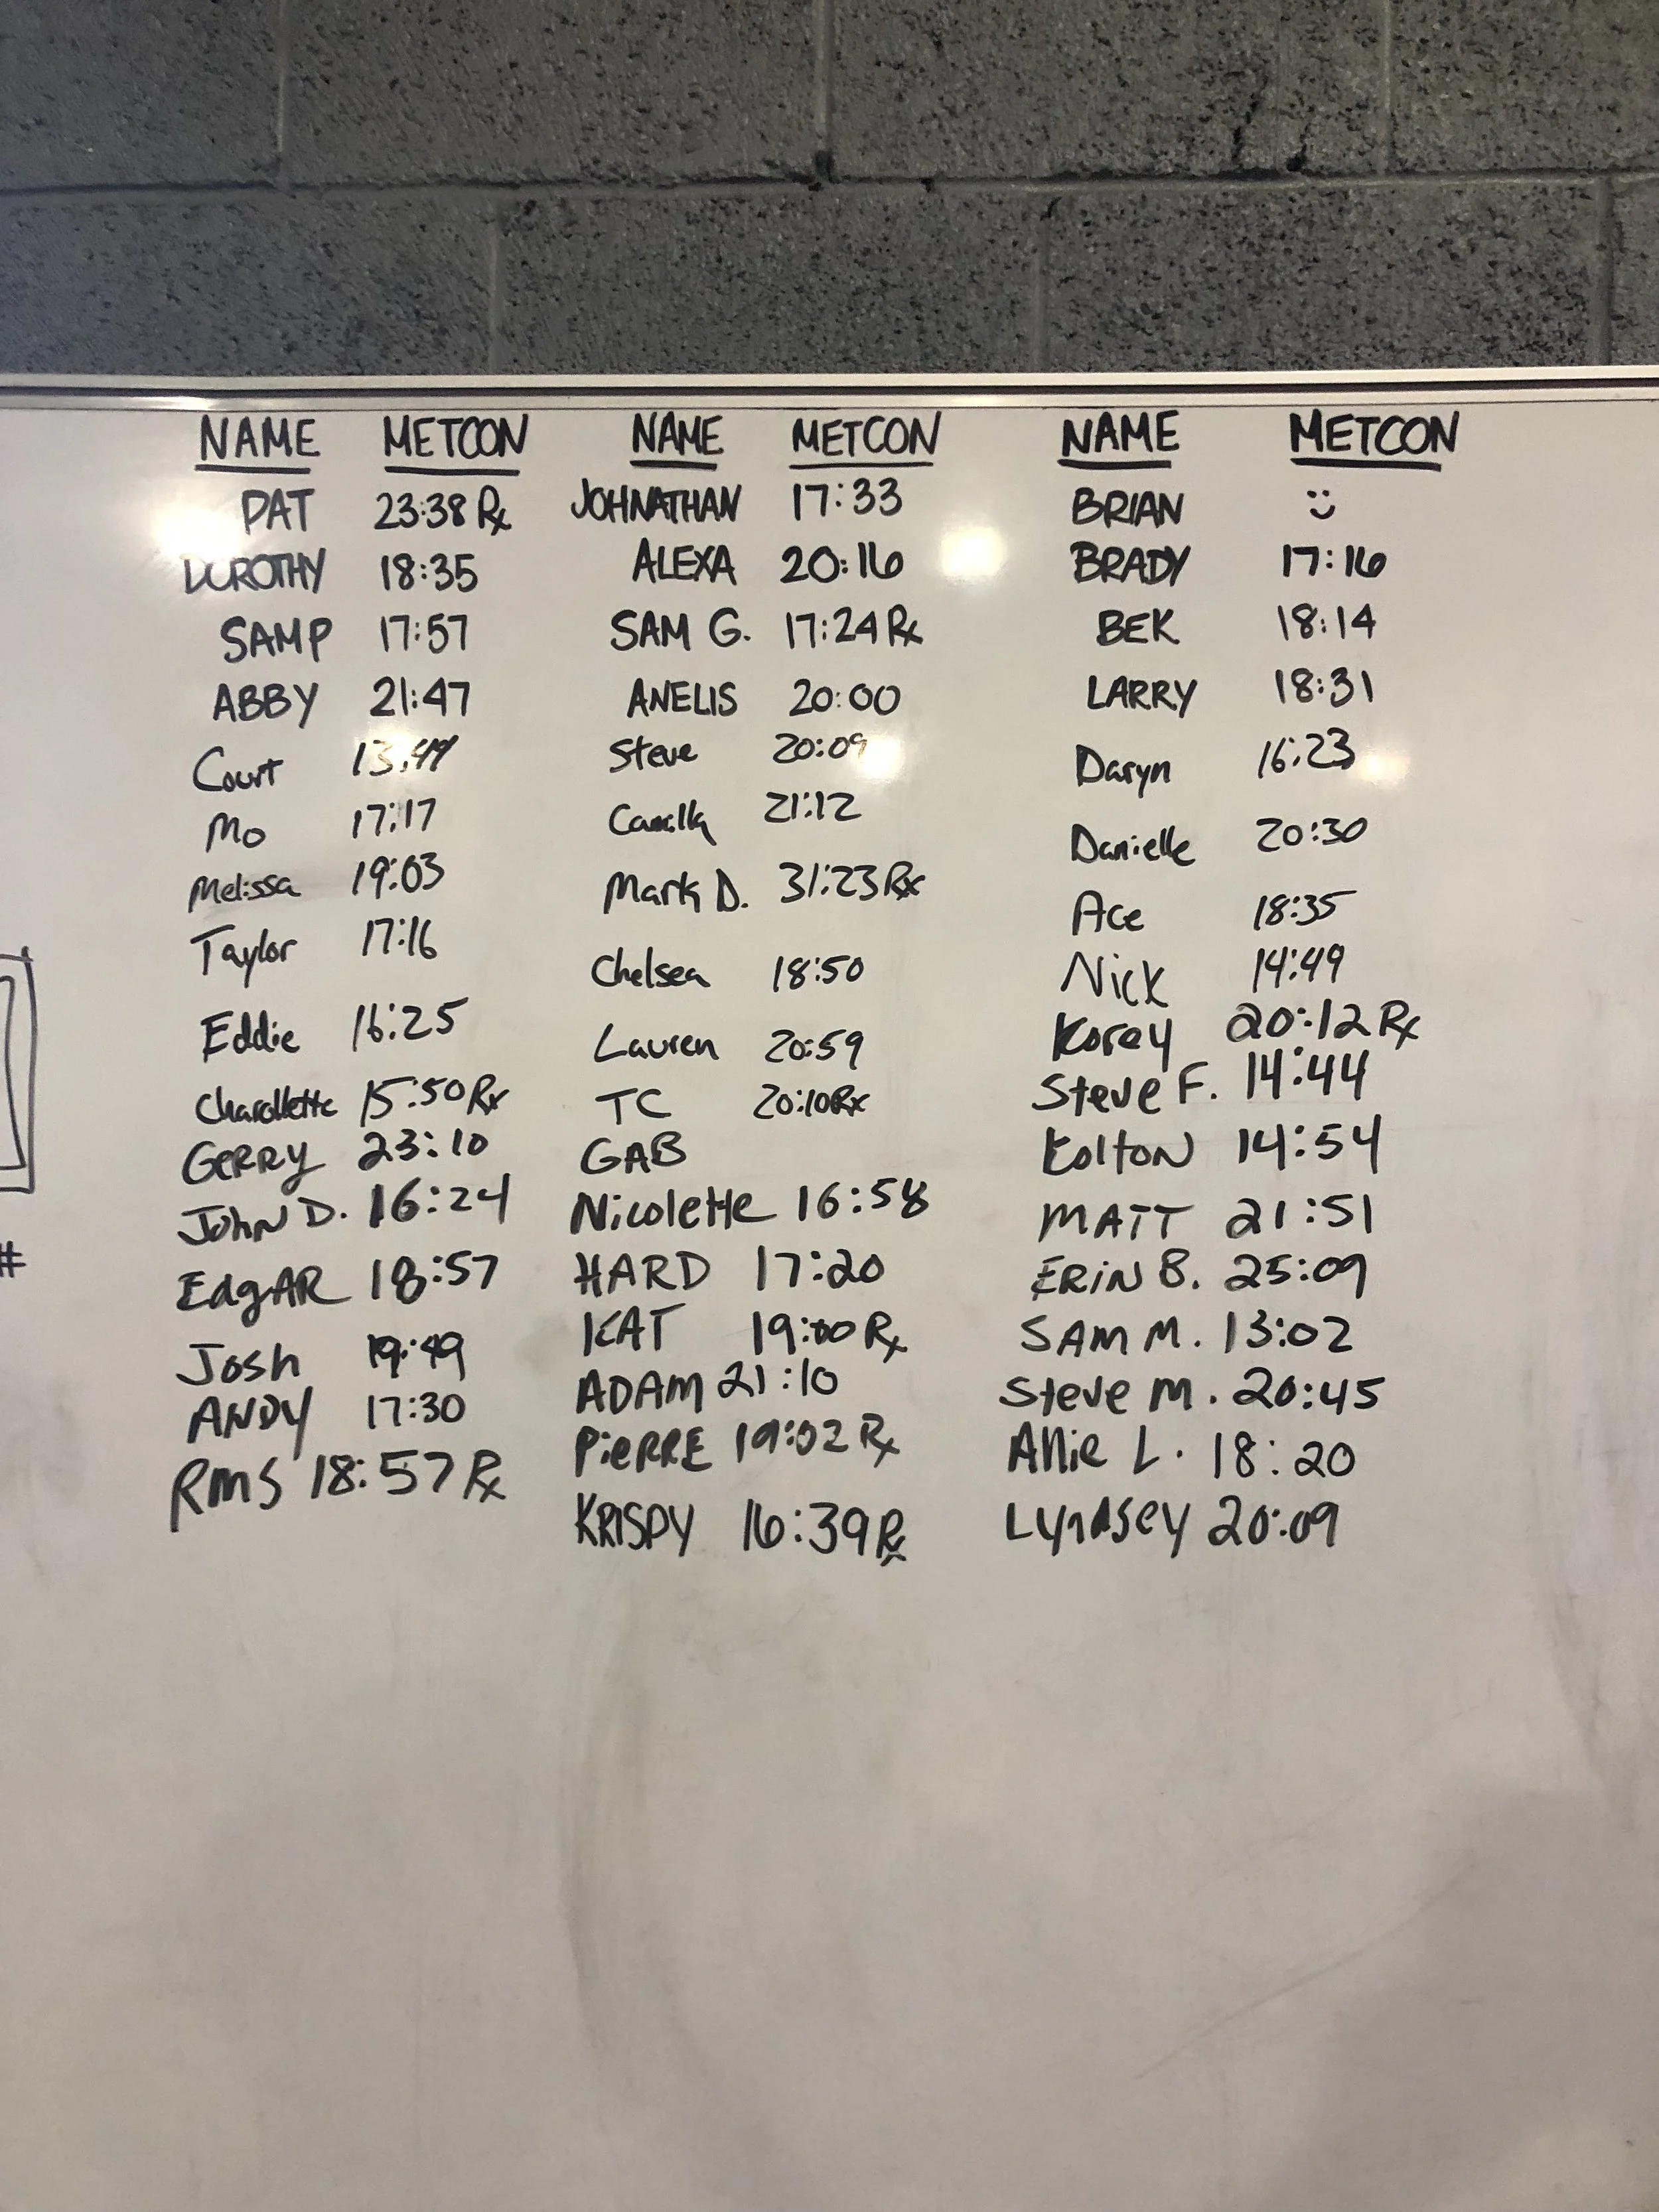 NAME METCON
PAT 23:38 Rx
DOROTHY 18:35
SAM P 17:57
ABBY 21:47
Court
Mo 17:17
Melissa 19:03
Taylor 17:16
Eddie 16:25
Charollette 15:50 Rx
GERRY 23:10
John D. 16:24
EdgAR 18:57
Josh 19:49
ANDY 17:30
RMS 18:57 Rx
NAME METCON
JOHNATHAN 17:33
ALEXA 20:16
SAM G. 17:24 Rx
ANELIS 20:00
Steve 20:09
Camilla 21:12
Mark D. 31:23 Rx
Chelsea 18:50
Lauren 20:59
TC 20:10 Rx
GAB
Nicolette 16:58
HARD 17:20
KAT 19:00 Rx
ADAM 21:10
PiERRE 19:02 Rx
KRISPY 16:39 Rx
NAME METCON
BRIAN
BRADY 17:16
BEK 18:14
LARRY 18:31
Daryn 16:23
Danielle 20:30
Ace 18:35
Nick 14:49
Korey 20:12 Rx
Steve F. 14:44
KoltoN 14:54
MATT 21:51
ERiN B. 25:09
SAM M. 13:02
Steve M. 20:45
Allie L. 18:20
Lyndsey 20:09
#